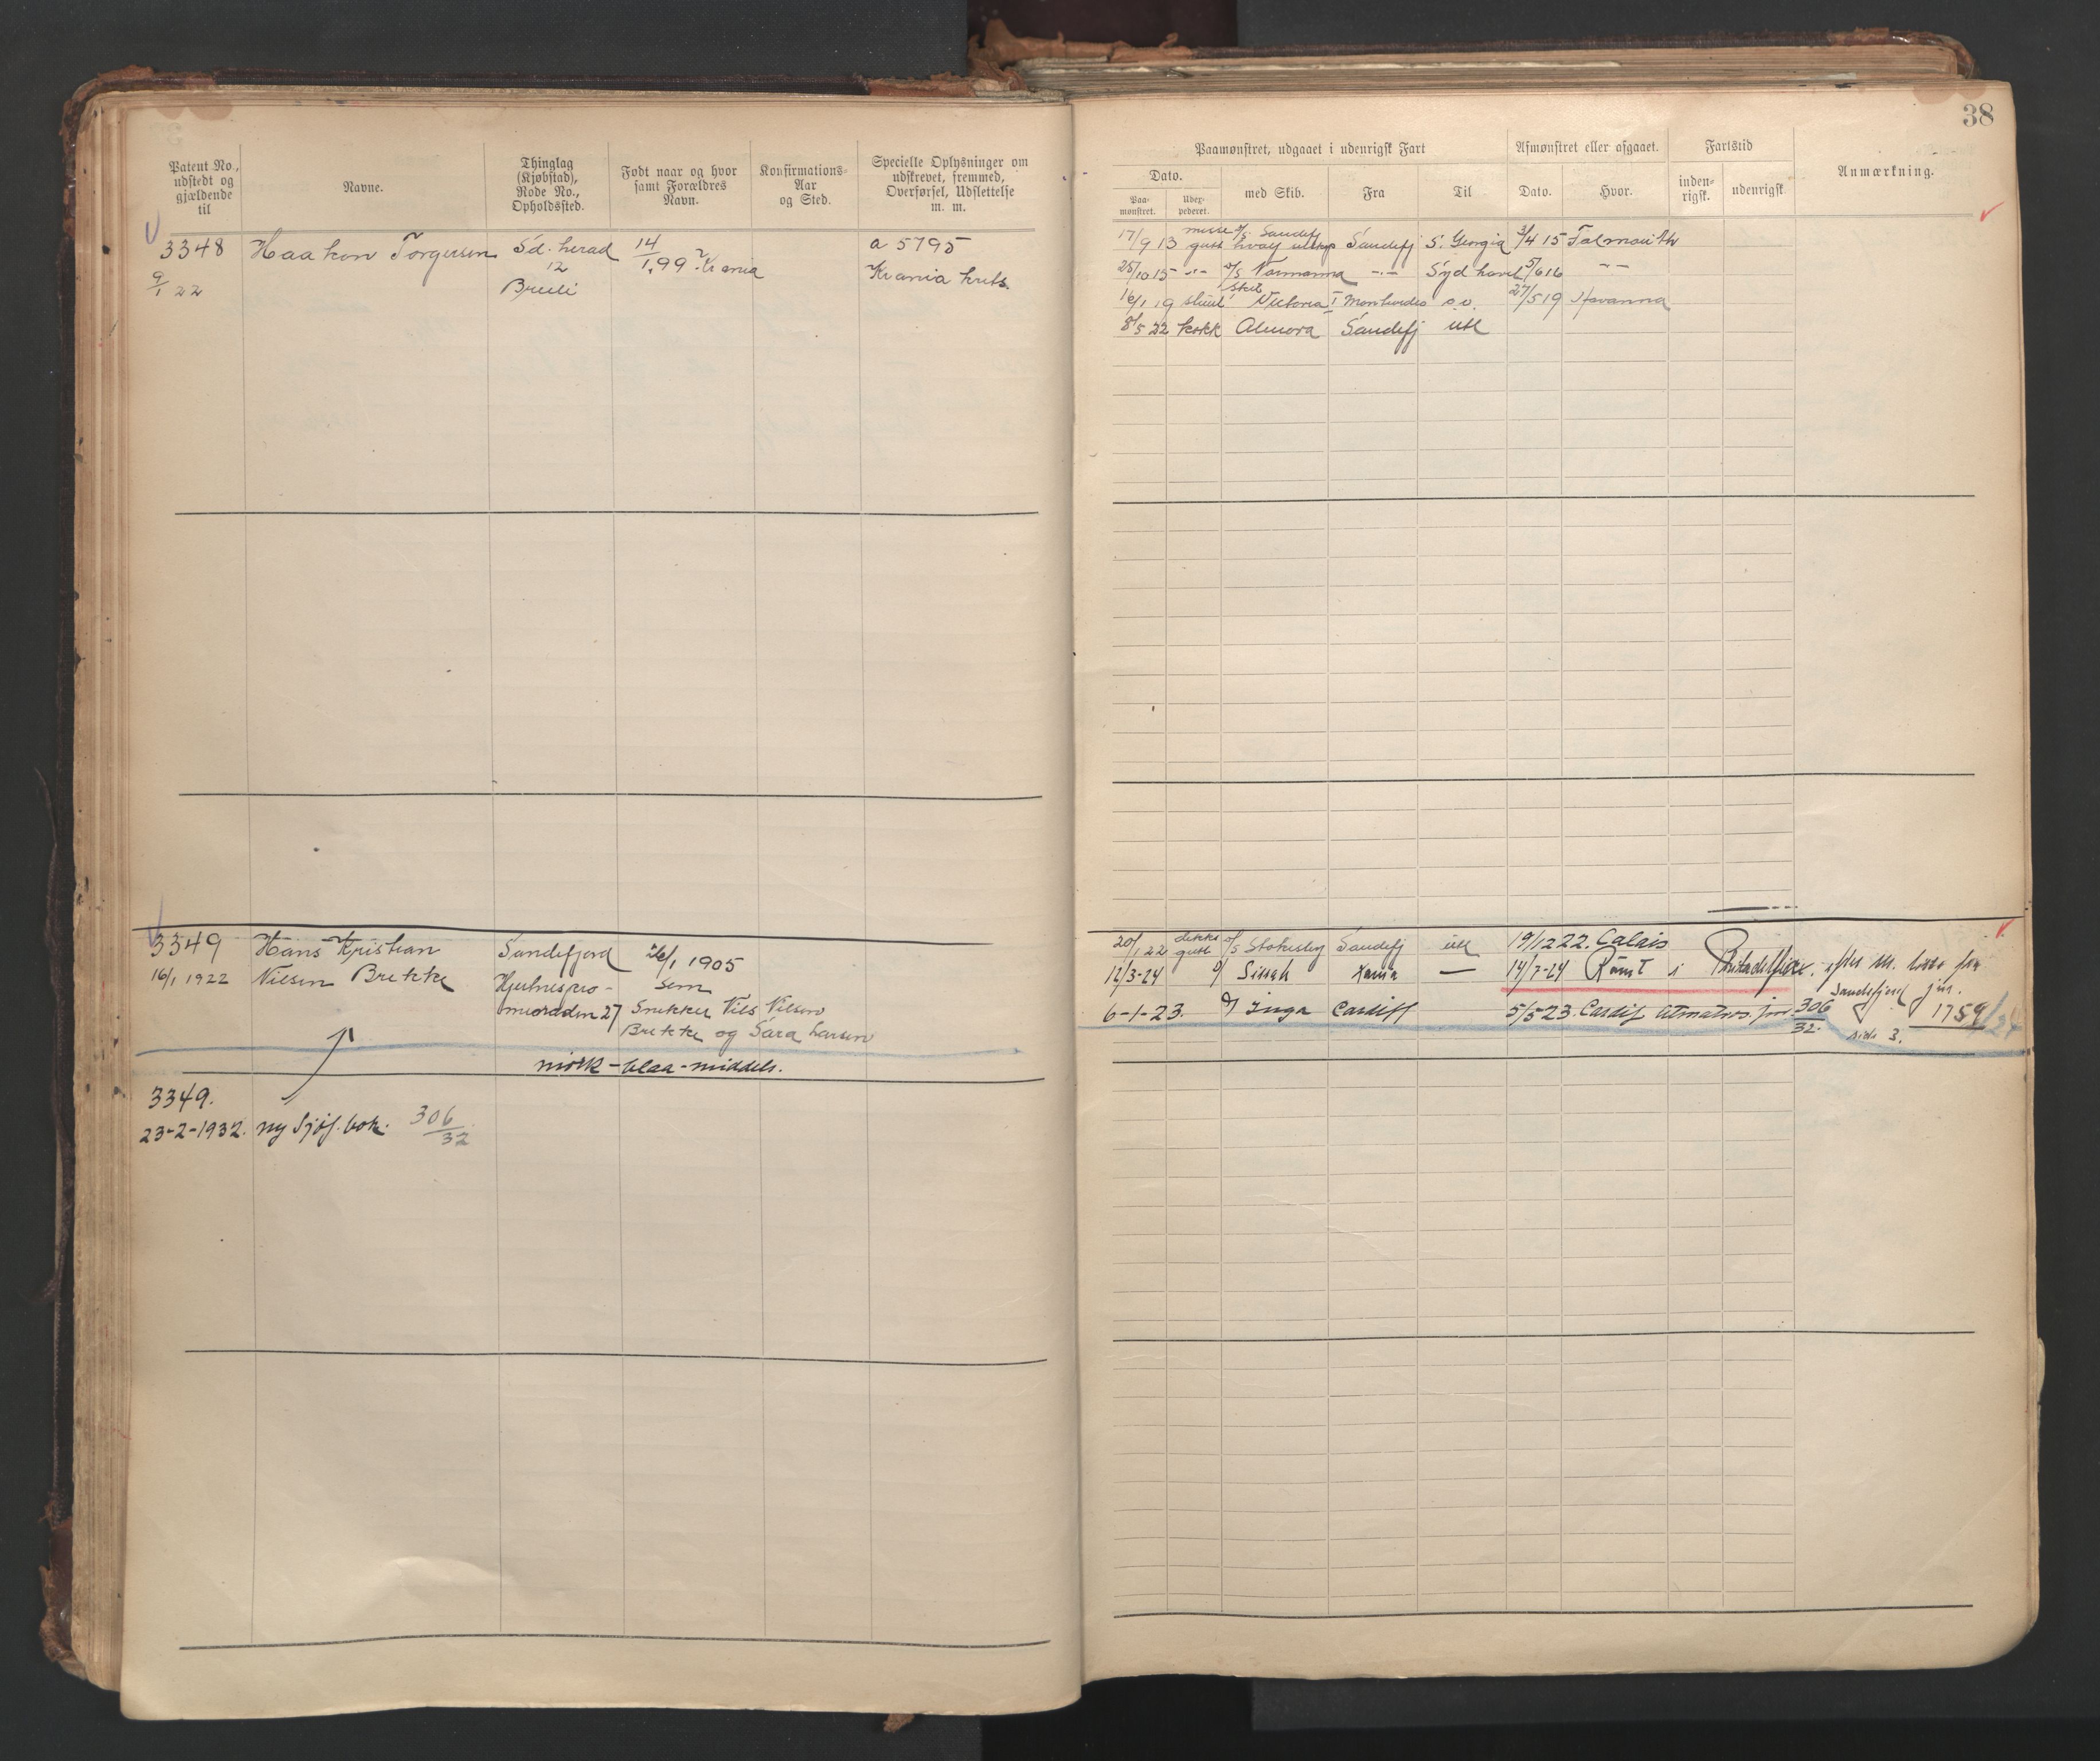 38
Patent No., udstedt og gjældende til
Navne.
Thinglag (Kjøbstad), Rode No., Opholdssted.
Født naar og hvor samt Forældres Navn.
Konfirmations-Aar og Sted.
Specielle Oplysninger om udskrevet, fremmed, Overførsel, Udslettelse m. m.
Paamønstret, udgaaet i udenrigsk Fart
Afmønstret eller afgaaet.
Fartstid
Anmærkning.
Dato.
med Skib.
Fra
Til
Dato.
Hvor.
inden-rigsk.
udenrigsk
Paa-mønstret.
Udex-pederet.
3348 Haakon Torgersen Sd. herad 14/1 99 Krania a 5795
9/1 22 12 Krania krets.
17/9 13 messegutt Sandefj S. Georgia 3/4 15 Falmouth
25/10 15 -"- Normanna -"- Syd havet 5/6 16 -"-
16/1 19 Victoria I o.v. 27/5 19 Havanna
8/5 22 kokk Almora Sandefj utl
3349 Hans Kristian Sandefjord 26/1 1905
16/1 1922 Nilsen Brekke Sem
27 Snekker Nils Nilsen
Brekke og Sara Larsen
mørk - blaa - middels.
20/1 22 dekksgutt Sandefj utl 19/12 22. Calais
12/3-24 Xania — 14/7-24 Rømt i Philadelfia
Sandefjord jnr. 1759/24
6-1-23. Inga Cardiff 5/5-23. Cardif 306/32 side 3.
3349.
23-2-1932. ny sjøf. bok. 306/32